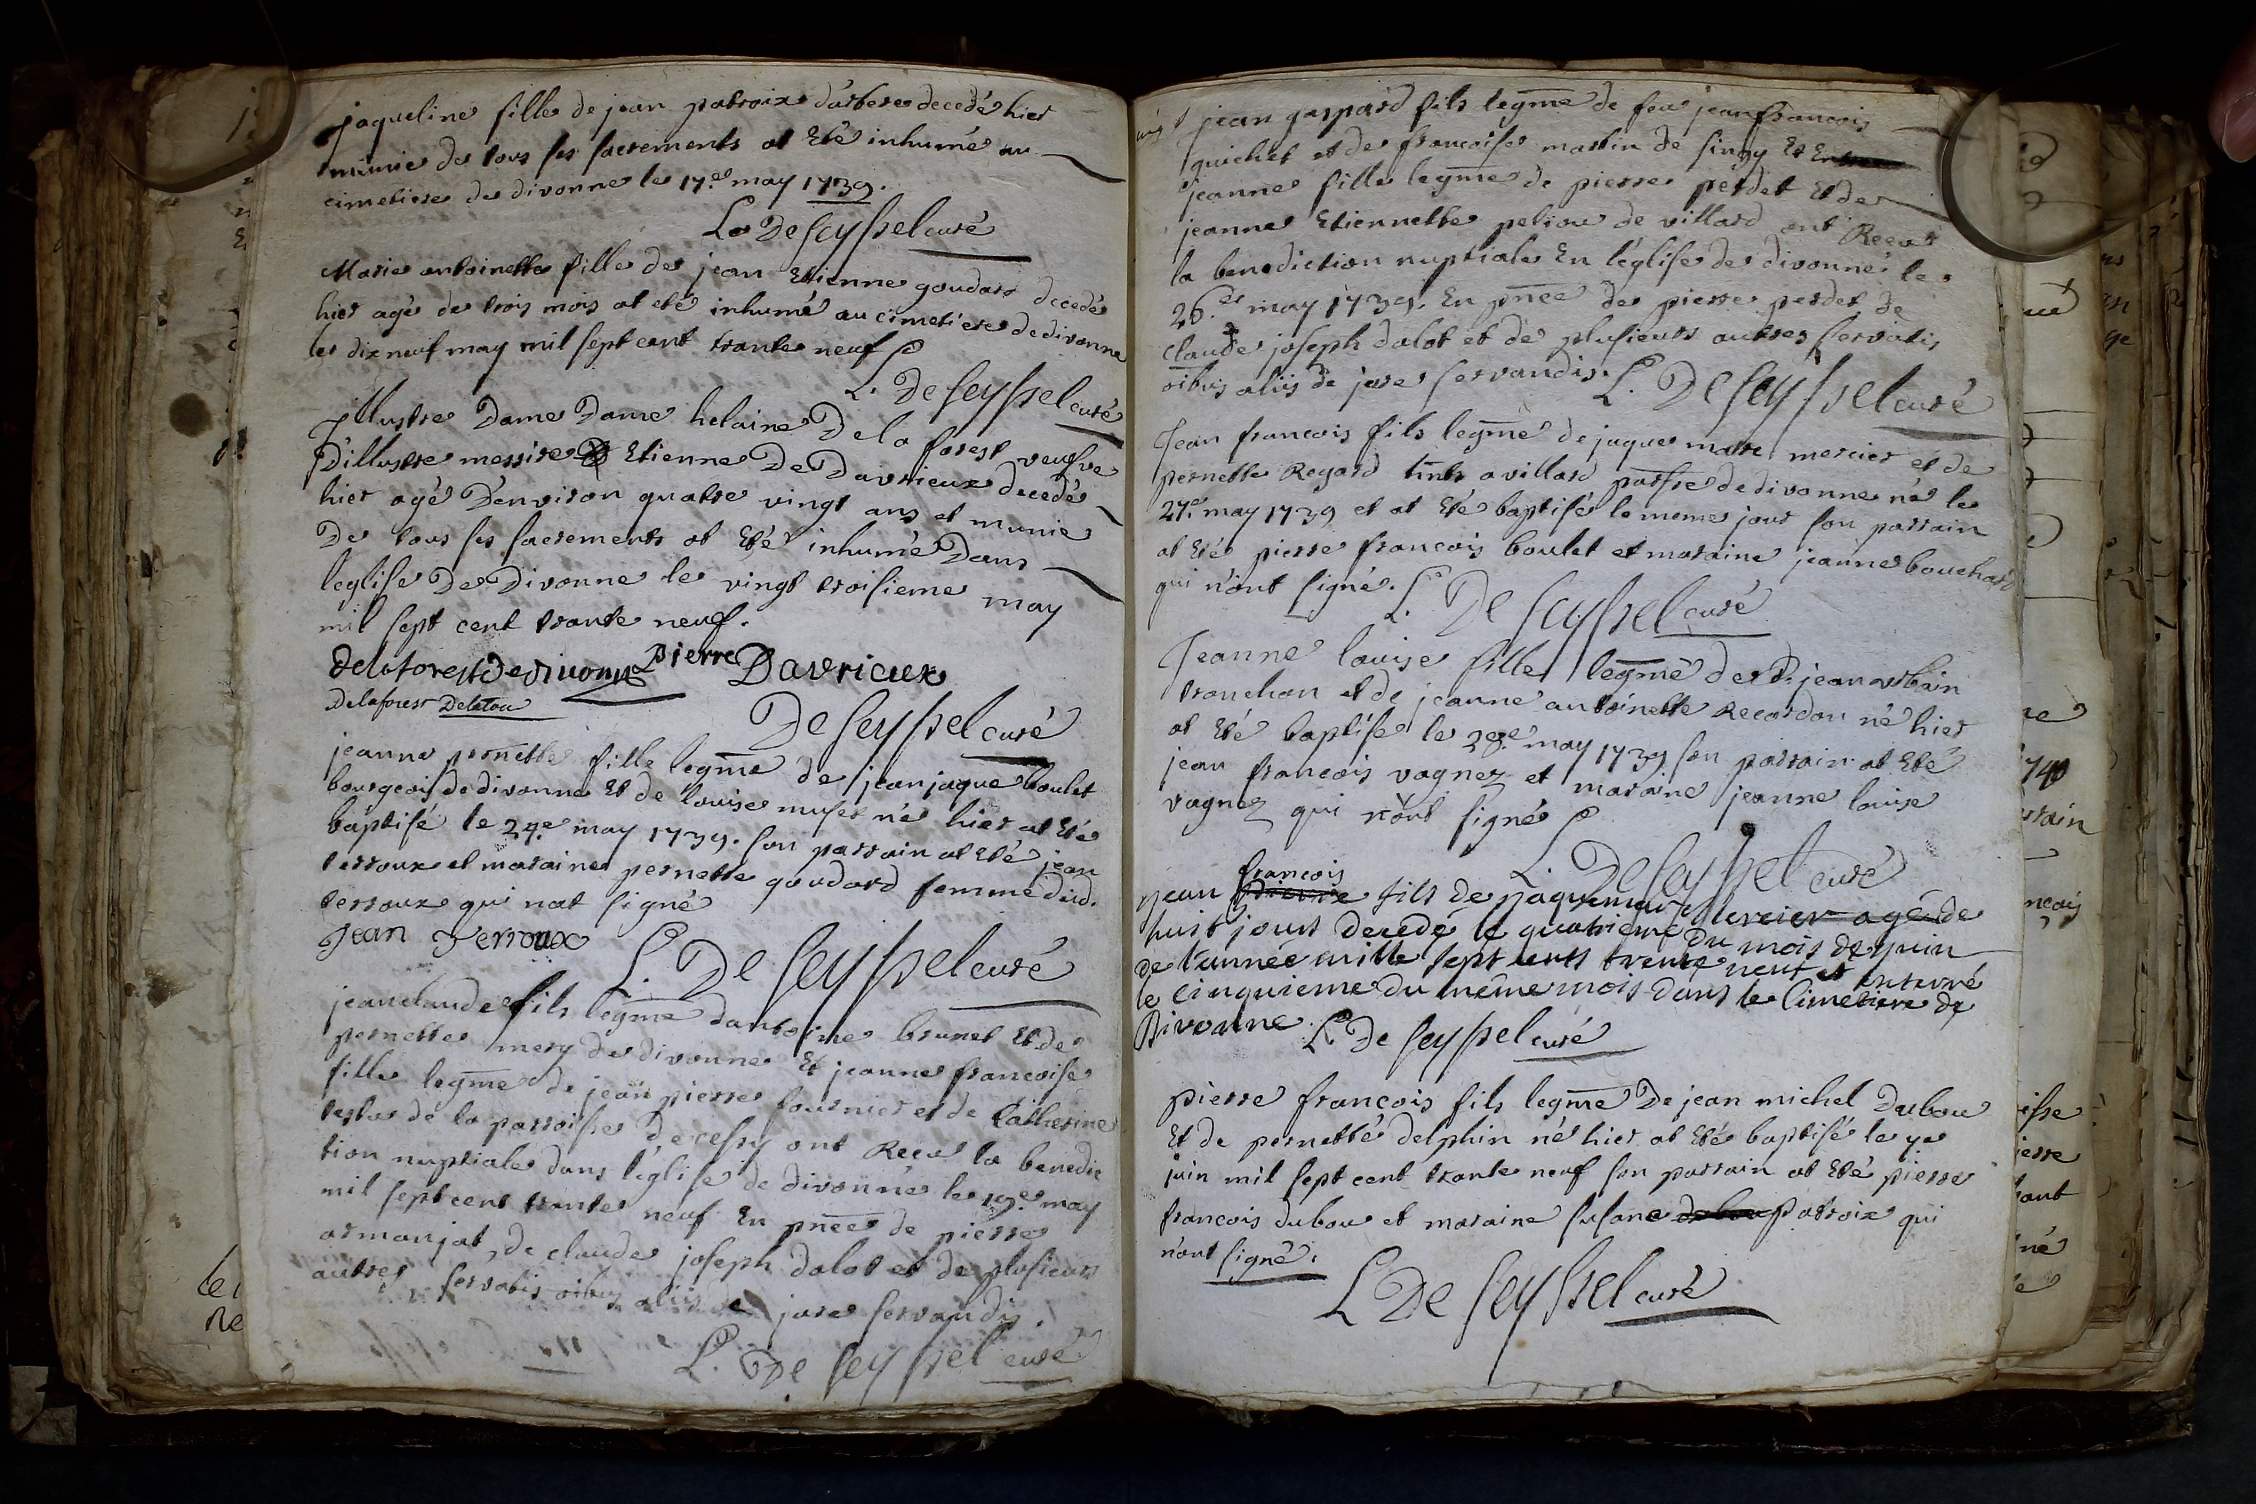 jaqueline fille de jean patroix d'arbere decedé hier
munie de tous ses sacrements at Eté inhumé au
cimetiere de divonne le 17.e may 1739.
L. De Seyssel curé
Marie antoinette fille de jean Etienne goudard decedé
hier agé de trois mois at eté inhumé au cimetiere de divonne
le dix neuf may mil sept cent trante neuf
L. De Seyssel curé
Illustre Dame Dame helaine De la forest veufve
D'illustre messire Etienne De Davrieux decedé
hier agé D'environ quatre vingt ans et munie
De tous ses sacrements at Eté inhumé Dans
leglise De Divonne le vingt troisieme may
mil sept cent trante neuf.
delaforest de divonne Pierre Davrieux
Delaforest Delatou
De Seyssel curé
jeanne pernette fille legme de jean jaque boulet
bourgeois de divonne Et de louise muset né hier at Eté
baptisé le 24.e may 1739. son parrain at Eté jean
terroux et maraine pernette goudard femme dud.
terroux qui nat signé
Jean Terroux
L. De Seyssel curé
jean claude fils legme dantoine brunet Et de
pernette mery de divonne Et jeanne francoise
fille legme de jean pierre fournier et de Catherine
de la parroisse de cessy ont Receu la benedic
tion nuptiale dans l'église de divonne le 19.e may
mil sept cent trante neuf En pnce de pierre
armanjat, de claude joseph dalot et de plusieurs
autres servatis oibus aliis de jure servandis.
L. De Seyssel curé
jean gaspard fils legme de feu jean francois
guichet et de francoise martin de singy Et
jeanne fille legme de pierre perdet Et de
jeanne Etiennette peliou de villard ont Receu
la benediction nuptiale En l'église de divonne le
26.e may 1739. En pnce de pierre perdet de
claude joseph dalot et de plusieurs autres servatis
oibus aliis de jure servandis.
L. De Seyssel curé
Jean francois fils legme de jaque marc mercier et de
pernette Regard hnts a villard parsse de divonne né le
27.e may 1739 et at Eté baptisé le meme jour son parrain
at Eté pierre francois boulet et maraine jeanne bouchard
qui n'ont signé.
L. De Seyssel curé
Jeanne louise fille legme de D. jean urbain
tronchon et de jeanne antoinette Recordon né hier
at Eté baptisé le 28.e may 1739 son parrain at Eté
jean francois vagnez et maraine jeanne louise
vagnez qui n'ont signé
L. De Seyssel curé
francois
jean Pierre fils de jaquemar Mercier agé de
huit jours decedé le quatrieme du mois de juin
de l'année mille sept cents trente neuf et enterré
le Cinquieme du même mois dans le Cimetiere de
Divonne.
L. De Seyssel curé
pierre francois fils legme De jean michel Dubou
Et de pernette delphin né hier at Eté baptisé le 7e
juin mil sept cent trante neuf son parrain at Eté pierre
francois dubou et maraine susane patroix qui
n'ont signé.
L De Seyssel curé